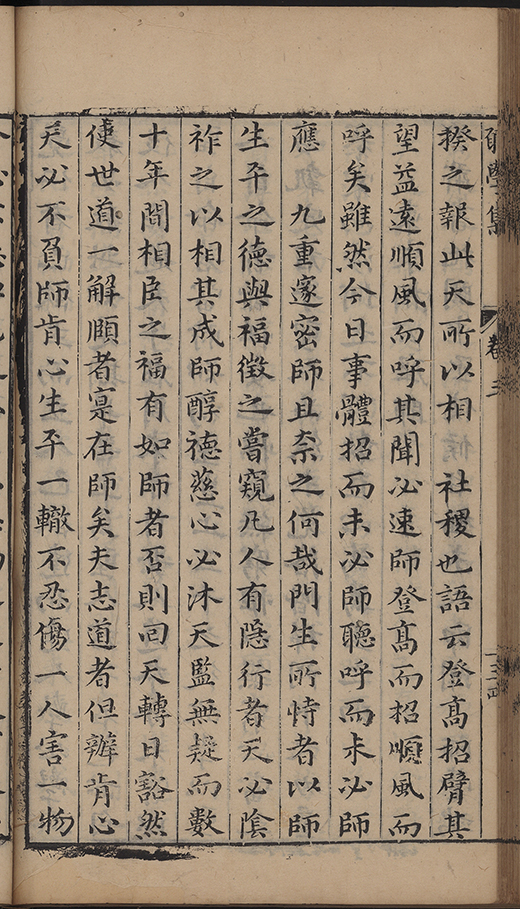 學集 卷三
揆之報此天所以相 社稷也語云登髙招臂其
望益遠順風而呼其聞必速師登髙而招順風而
呼矣雖然今日事體招而未必師聽呼而未必師
應 九重邃密師且柰之何哉門生所恃者以師
生平之德與福徵之嘗窺凡人有隱行者天必陰
祚之以相其成師醇德慈心必沐天監無疑而數
十年間相臣之福有如師者否則回天轉日豁然
使世道一解頤者寔在師矣夫志道者但辦肯心
天必不負師肯心生平一轍不忍傷一人害一物